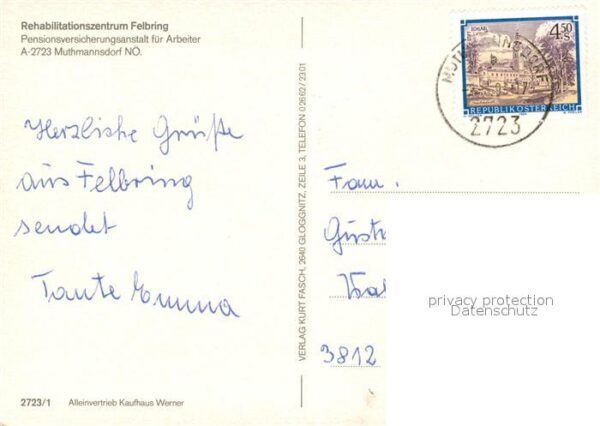 Rehabilitationszentrum Felbring
Pensionsversicherungsanstalt für Arbeiter
A-2723 Muthmannsdorf NÖ.
Herzliche Grüße
aus Felbring
sendet
Tante Emma
2723/1 Alleinvertrieb Kaufhaus Werner
VERLAG KURT FASCH, 2640 GLOGGNITZ, ZEILE 3, TELEFON 0 26 62 / 23 01
4.50 S
REPUBLIK ÖSTERREICH
2723
Fam.
3812
privacy protection
Datenschutz